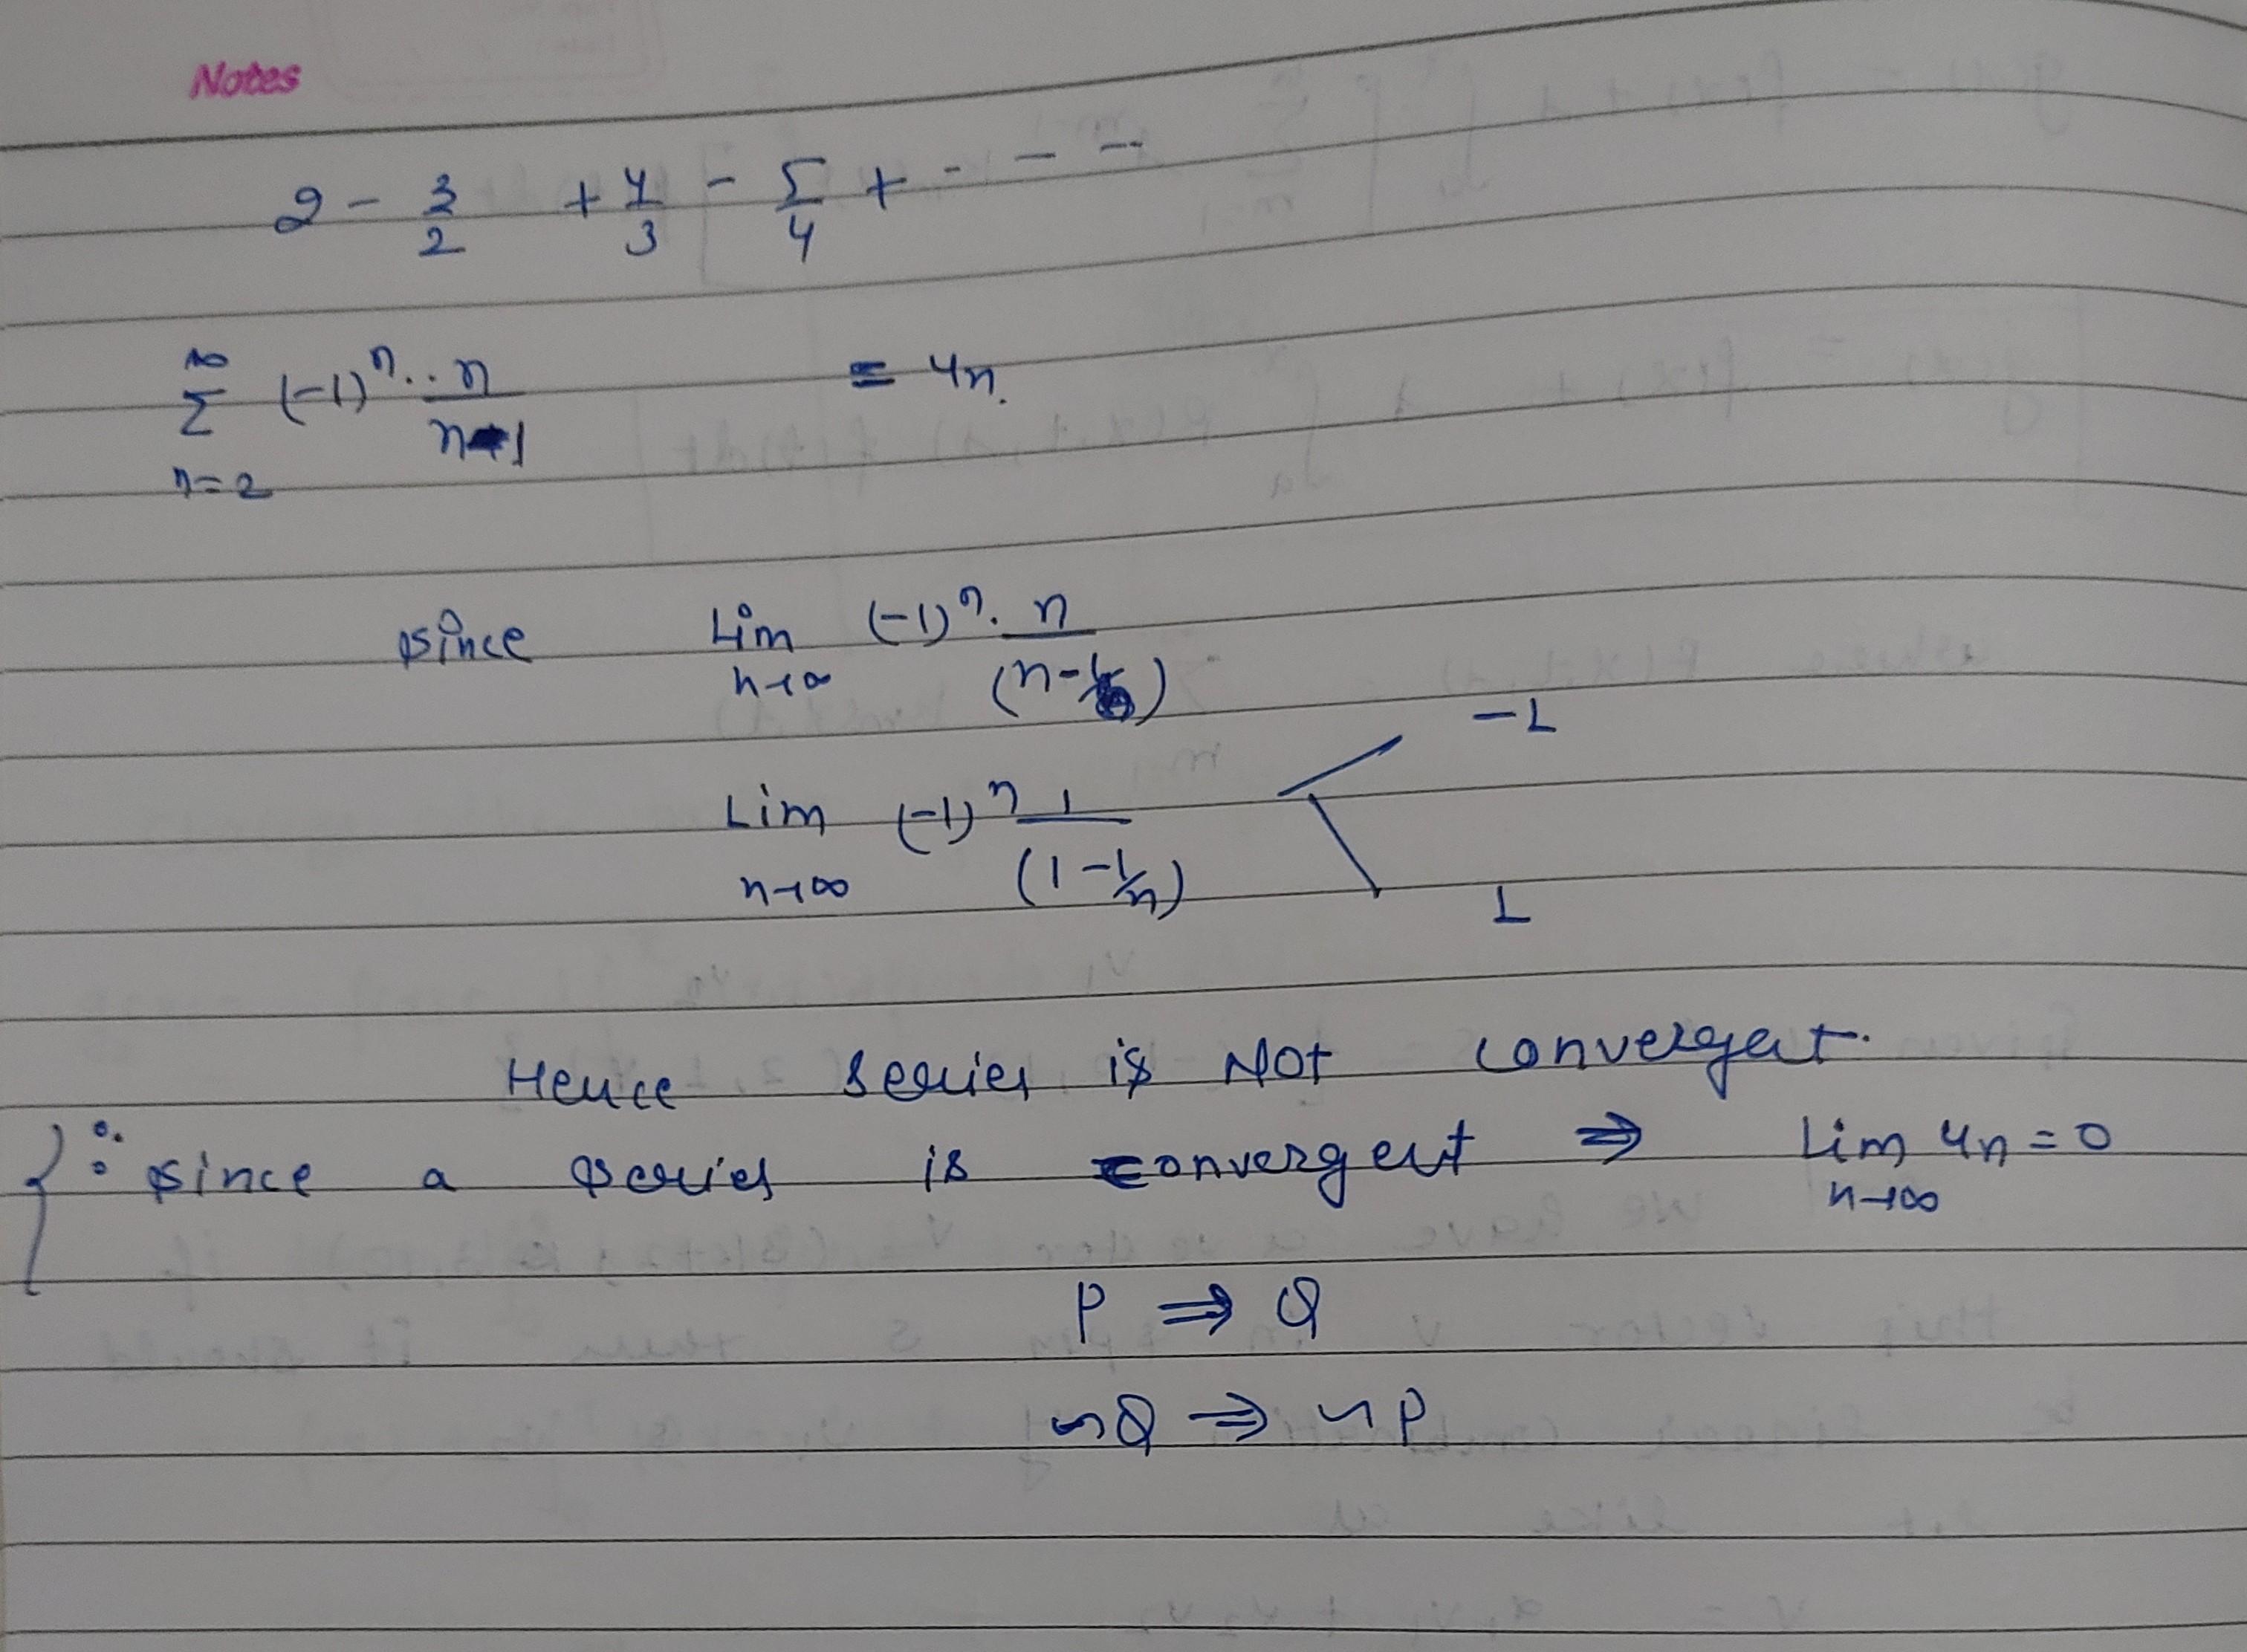 Notes
2 - 3/2 + 4/3 - 5/4 + - - -
∞ Σ n=2 (-1)ⁿ · n/(n-1) = un.
since Lim n→∞ (-1)ⁿ · n/(n-1)
Lim n→∞ (-1)ⁿ 1/(1-1/n) -1
1
Hence series is Not convergent.
{ ∵ since a series is convergent ⇒ Lim n→∞ un = 0
P ⇒ Q
~Q ⇒ ~P